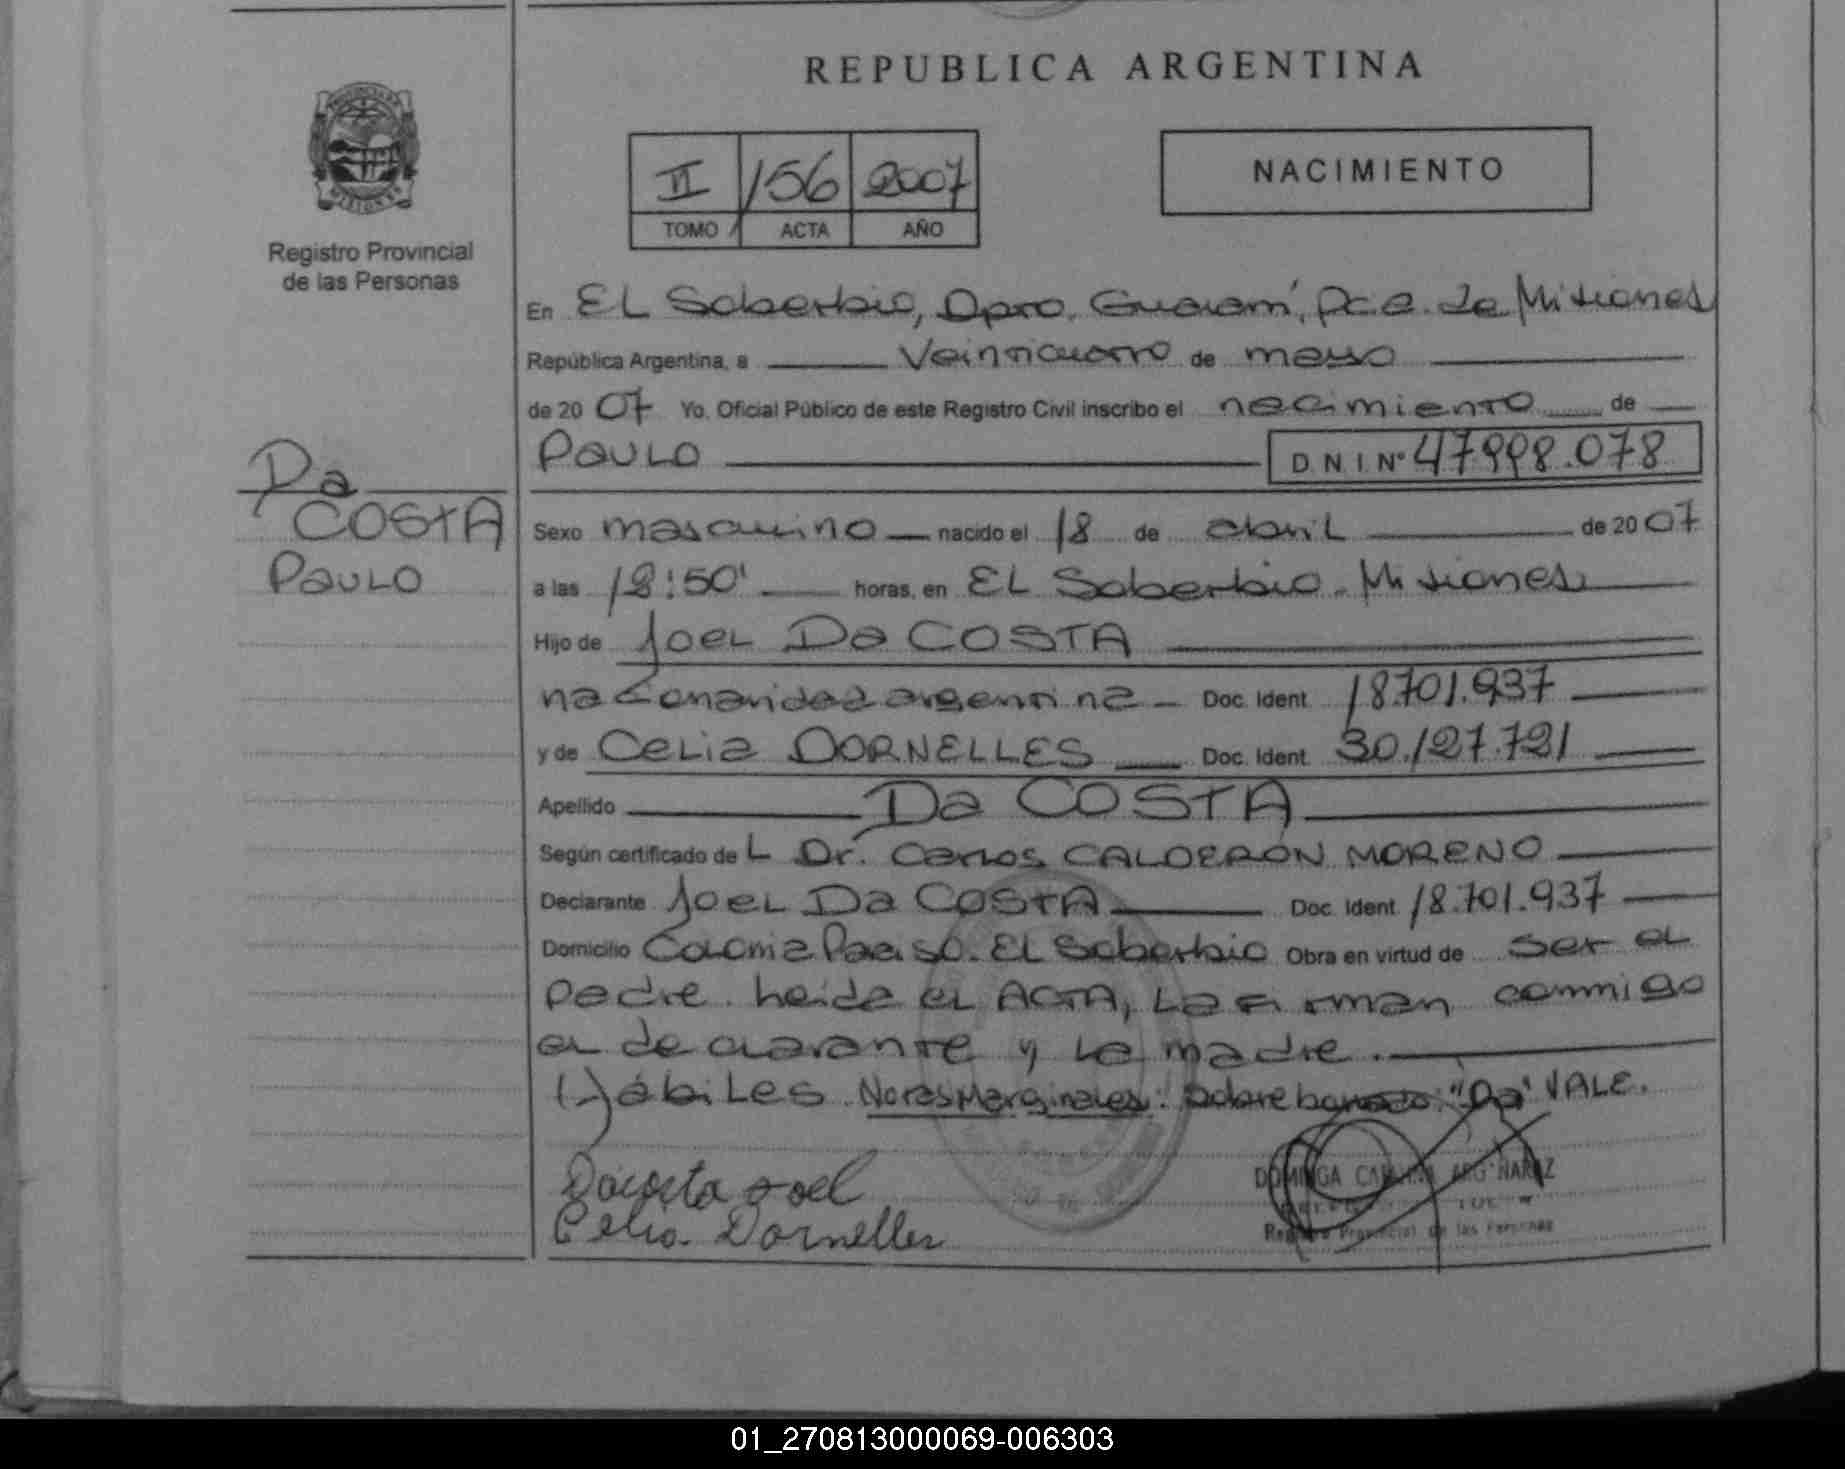 REPUBLICA ARGENTINA
PROVINCIA DE
MISIONES
Registro Provincial
de las Personas
II 156 2007
TOMO ACTA AÑO
NACIMIENTO
En EL Soberbio, Dpto. Guaraní, Pcia. de Misiones
República Argentina, a Veinticuatro de mayo
de 2007 Yo, Oficial Público de este Registro Civil inscribo el nacimiento de
PAULO D.N.I. Nº 47998.078
Da
COSTA
PAULO
Sexo masculino nacido el 18 de abril de 2007
a las 12:50' horas, en EL Soberbio. Misiones
Hijo de Joel Da COSTA
nacionalidad argentina Doc. Ident. 18.701.937
y de Celia DORNELLES Doc. Ident. 30.127.721
Apellido Da COSTA
Según certificado de L Dr. Carlos CALDERON MORENO
Declarante Joel Da COSTA Doc. Ident. 18.701.937
Domicilio Colonia Paraiso. EL Soberbio Obra en virtud de ser el
padre. heida el ACTA, La firman conmigo
el declarante y la madre.
(-) ábiles Notas Marginales: Sobre borrado: "Da" VALE.
Dacosta Joel
Celia Dornelles
DOMINGA CATALINA
Registro Provincial de las Personas
01_270813000069-006303